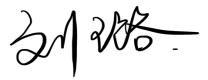 刘璐.